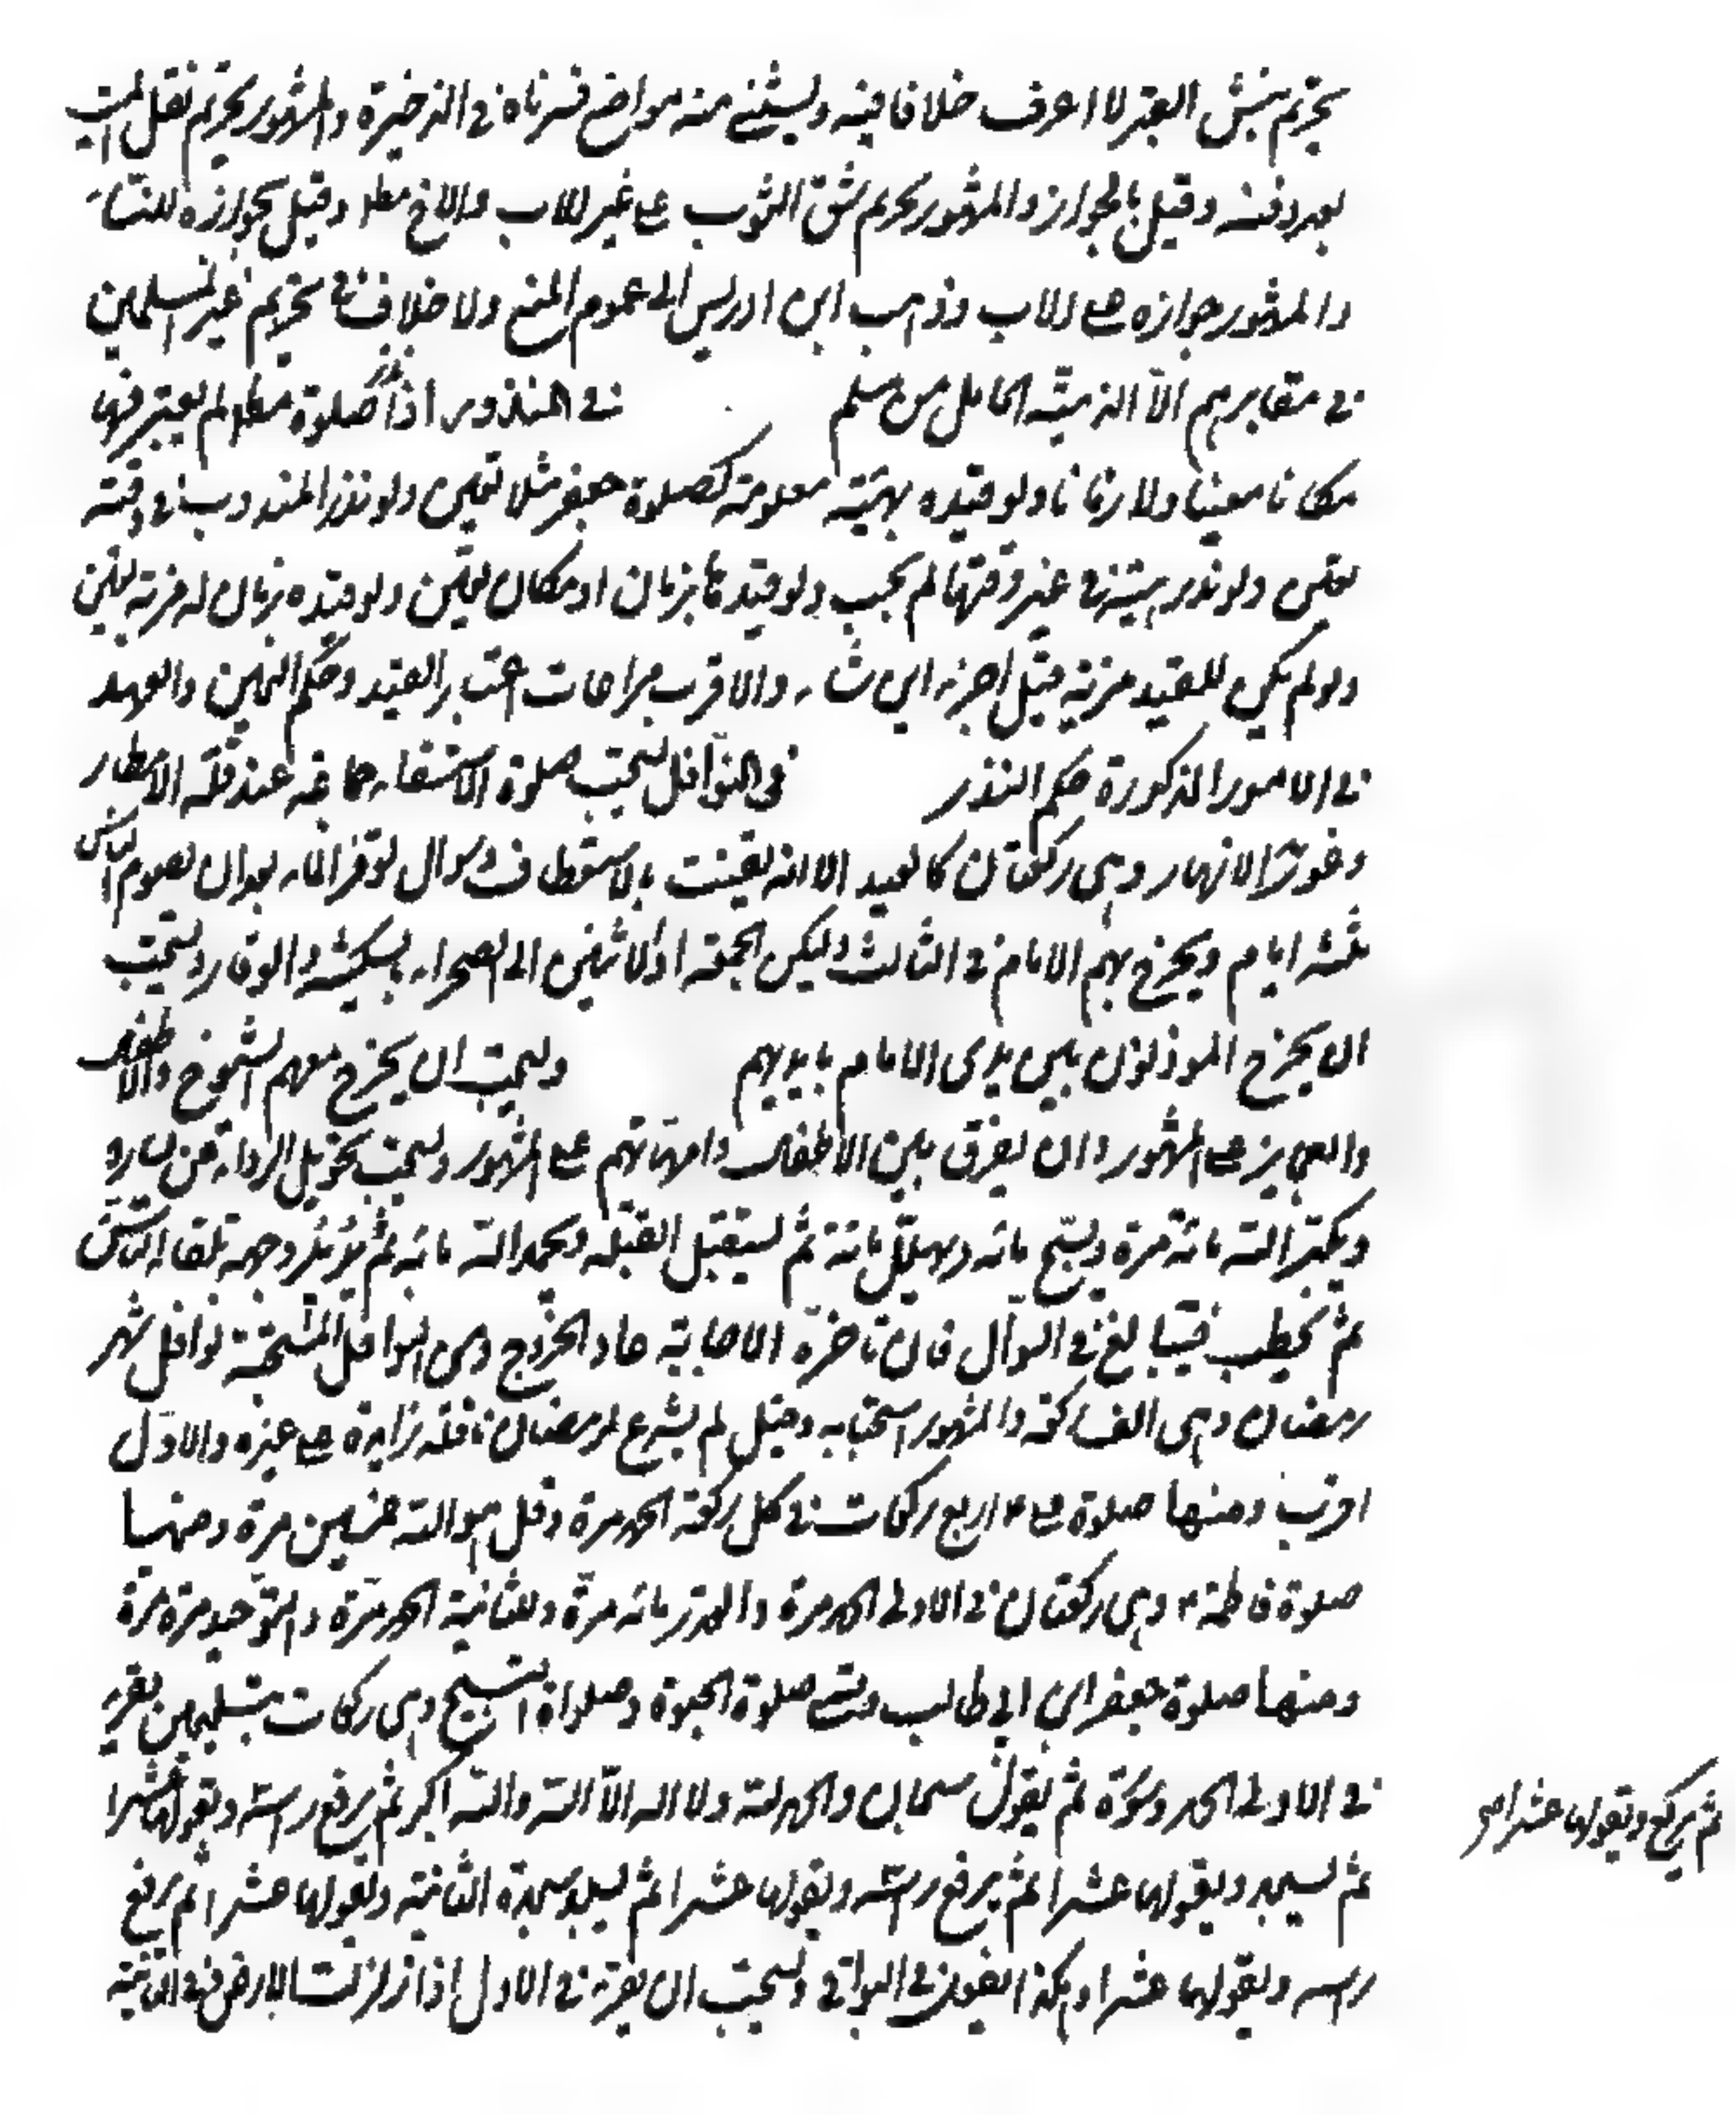 يحرم نبش القبر لا اعرف خلافا فيه ويستثنى منه مواضع فسرناه في الذخيرة والمشهور تحريم نقل الميت
بعد دفنه وقيل بالجواز والمشهور تحريم شق الثوب على غير الاب والاخ مطلقا وقيل بجوازه للنساء
والمشهور جوازه على الاب وذهب ابن ادريس الى عموم المنع ولا خلاف في تحريم غير المسلمين
في مقابرهم الا الذمية الحامل من مسلم في المنذور اذا نذر صلوة مطلقا لم يعتبر فيها
مكانا معينا ولا زمانا ولو قيده بهيئة معلومة كصلوة جعفر مثلا تعين ولو نذر المندوب في وقته
تعين ولو نذر هيئة في غير وقتها لم يجب ولو قيدها بزمان او مكان تعين ولو قيده بزمان له مزية تعين
ولو لم يكن للقيد مزية قيل اجزئه اين شاء والاقرب مراعات اعتبار القيد وحكم اليمين والعهد
في الامور المذكورة حكم النذر في النوافل يستحب صلوة الاستسقاء جماعة عند قلة الامطار
وغور الانهار وهى ركعتان كالعيد الا انه يقنت بالاستعطاف وسوال توفر الماء بعد ان يصوم الناس
ثلثة ايام ويخرج بهم الامام في الثالث وليكن الجمعة او الاثنين الى الصحراء بسكينة والوقار ويستحب
ان يخرج الموذنون بين يدى الامام بايديهم ويستحب ان يخرج معهم الشيوخ والاطفال
والعجايز على المشهور وان يفرق بين الاطفال وامهاتهم على المشهور ويستحب تحويل الرداء عن يساره
ويكبر الله مائة مرة ويسبح مائة ويهلل مائة ثم يستقبل القبلة ويحمد الله مائة ثم وجهه تلقاء الناس
ثم يخطب فيبالغ في السوال فان تاخرت الاجابة عاد الخروج ومن النوافل المستحبة نوافل شهر
رمضان وهى الف ركعة والمشهور استحبابه وقيل لم يشرع لرمضان نافلة زايدة على غيره والاول
اقرب ومنها صلوة على ع اربع ركعات في كل ركعة الحمد مرة وقل هو الله خمسين مرة ومنها
صلوة فاطمة ع وهى ركعتان في الاولى الحمد مرة والقدر مائة مرة وللثانية الحمد مرة والتوحيد مرة مرة
ومنها صلوة جعفر ابن ابى طالب وتسمى صلوة الحبوة وصلواة التسبيح وهى ركعات بتسليمين يقرء
في الاولى الحمد وسورة ثم يقول سبحان والحمد لله ولا اله الا الله والله اكبر ثم يرفع راسه ويقولها عشرا
ثم يركع ويقولها عشرا صح
ثم يسجد ويقولها عشرا ثم يرفع راسه ويقولها عشرا ثم يسجد سجدة الثانية ويقولها عشرا ثم يرفع
راسه ويقولها عشرا وهكذا يفعل في البواقى ويستحب ان يقرء في الاول اذا زلزلت الارض في الثانية